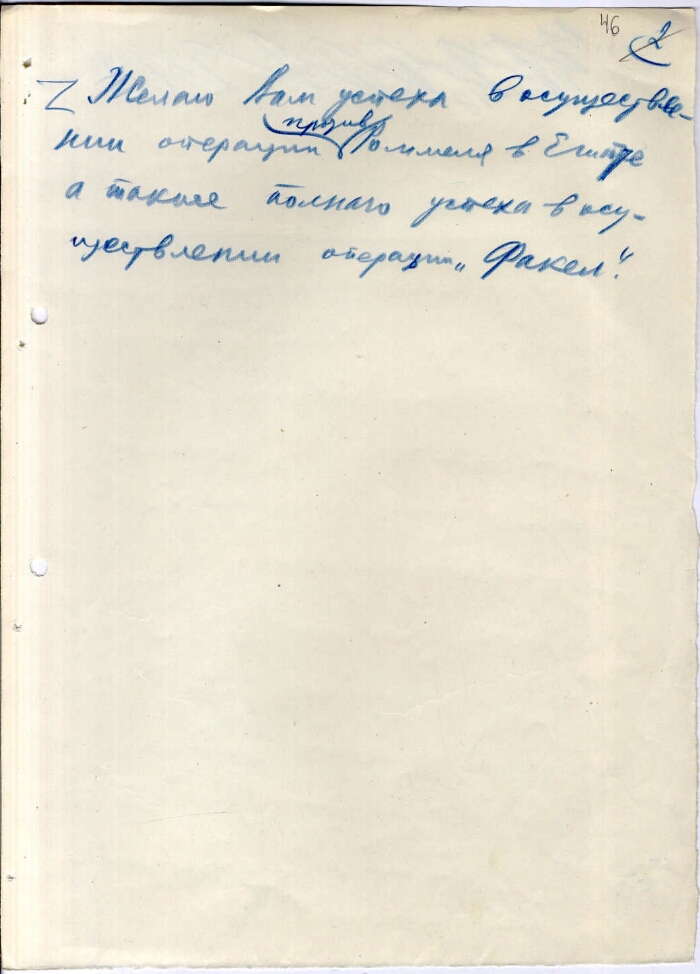 46 2
Желаю Вам успеха в осуществле-
нии операции против Роммеля в Египте
а также полного успеха в осу-
ществлении операции „Факел“.